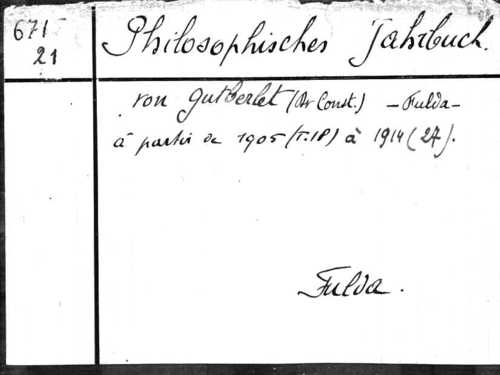 671
21
Philosophisches Jahrbuch.
von Gutberlet (Dr Const.) — Fulda —
à partir de 1905 (T.18) à 1914 (27).
Fulda.